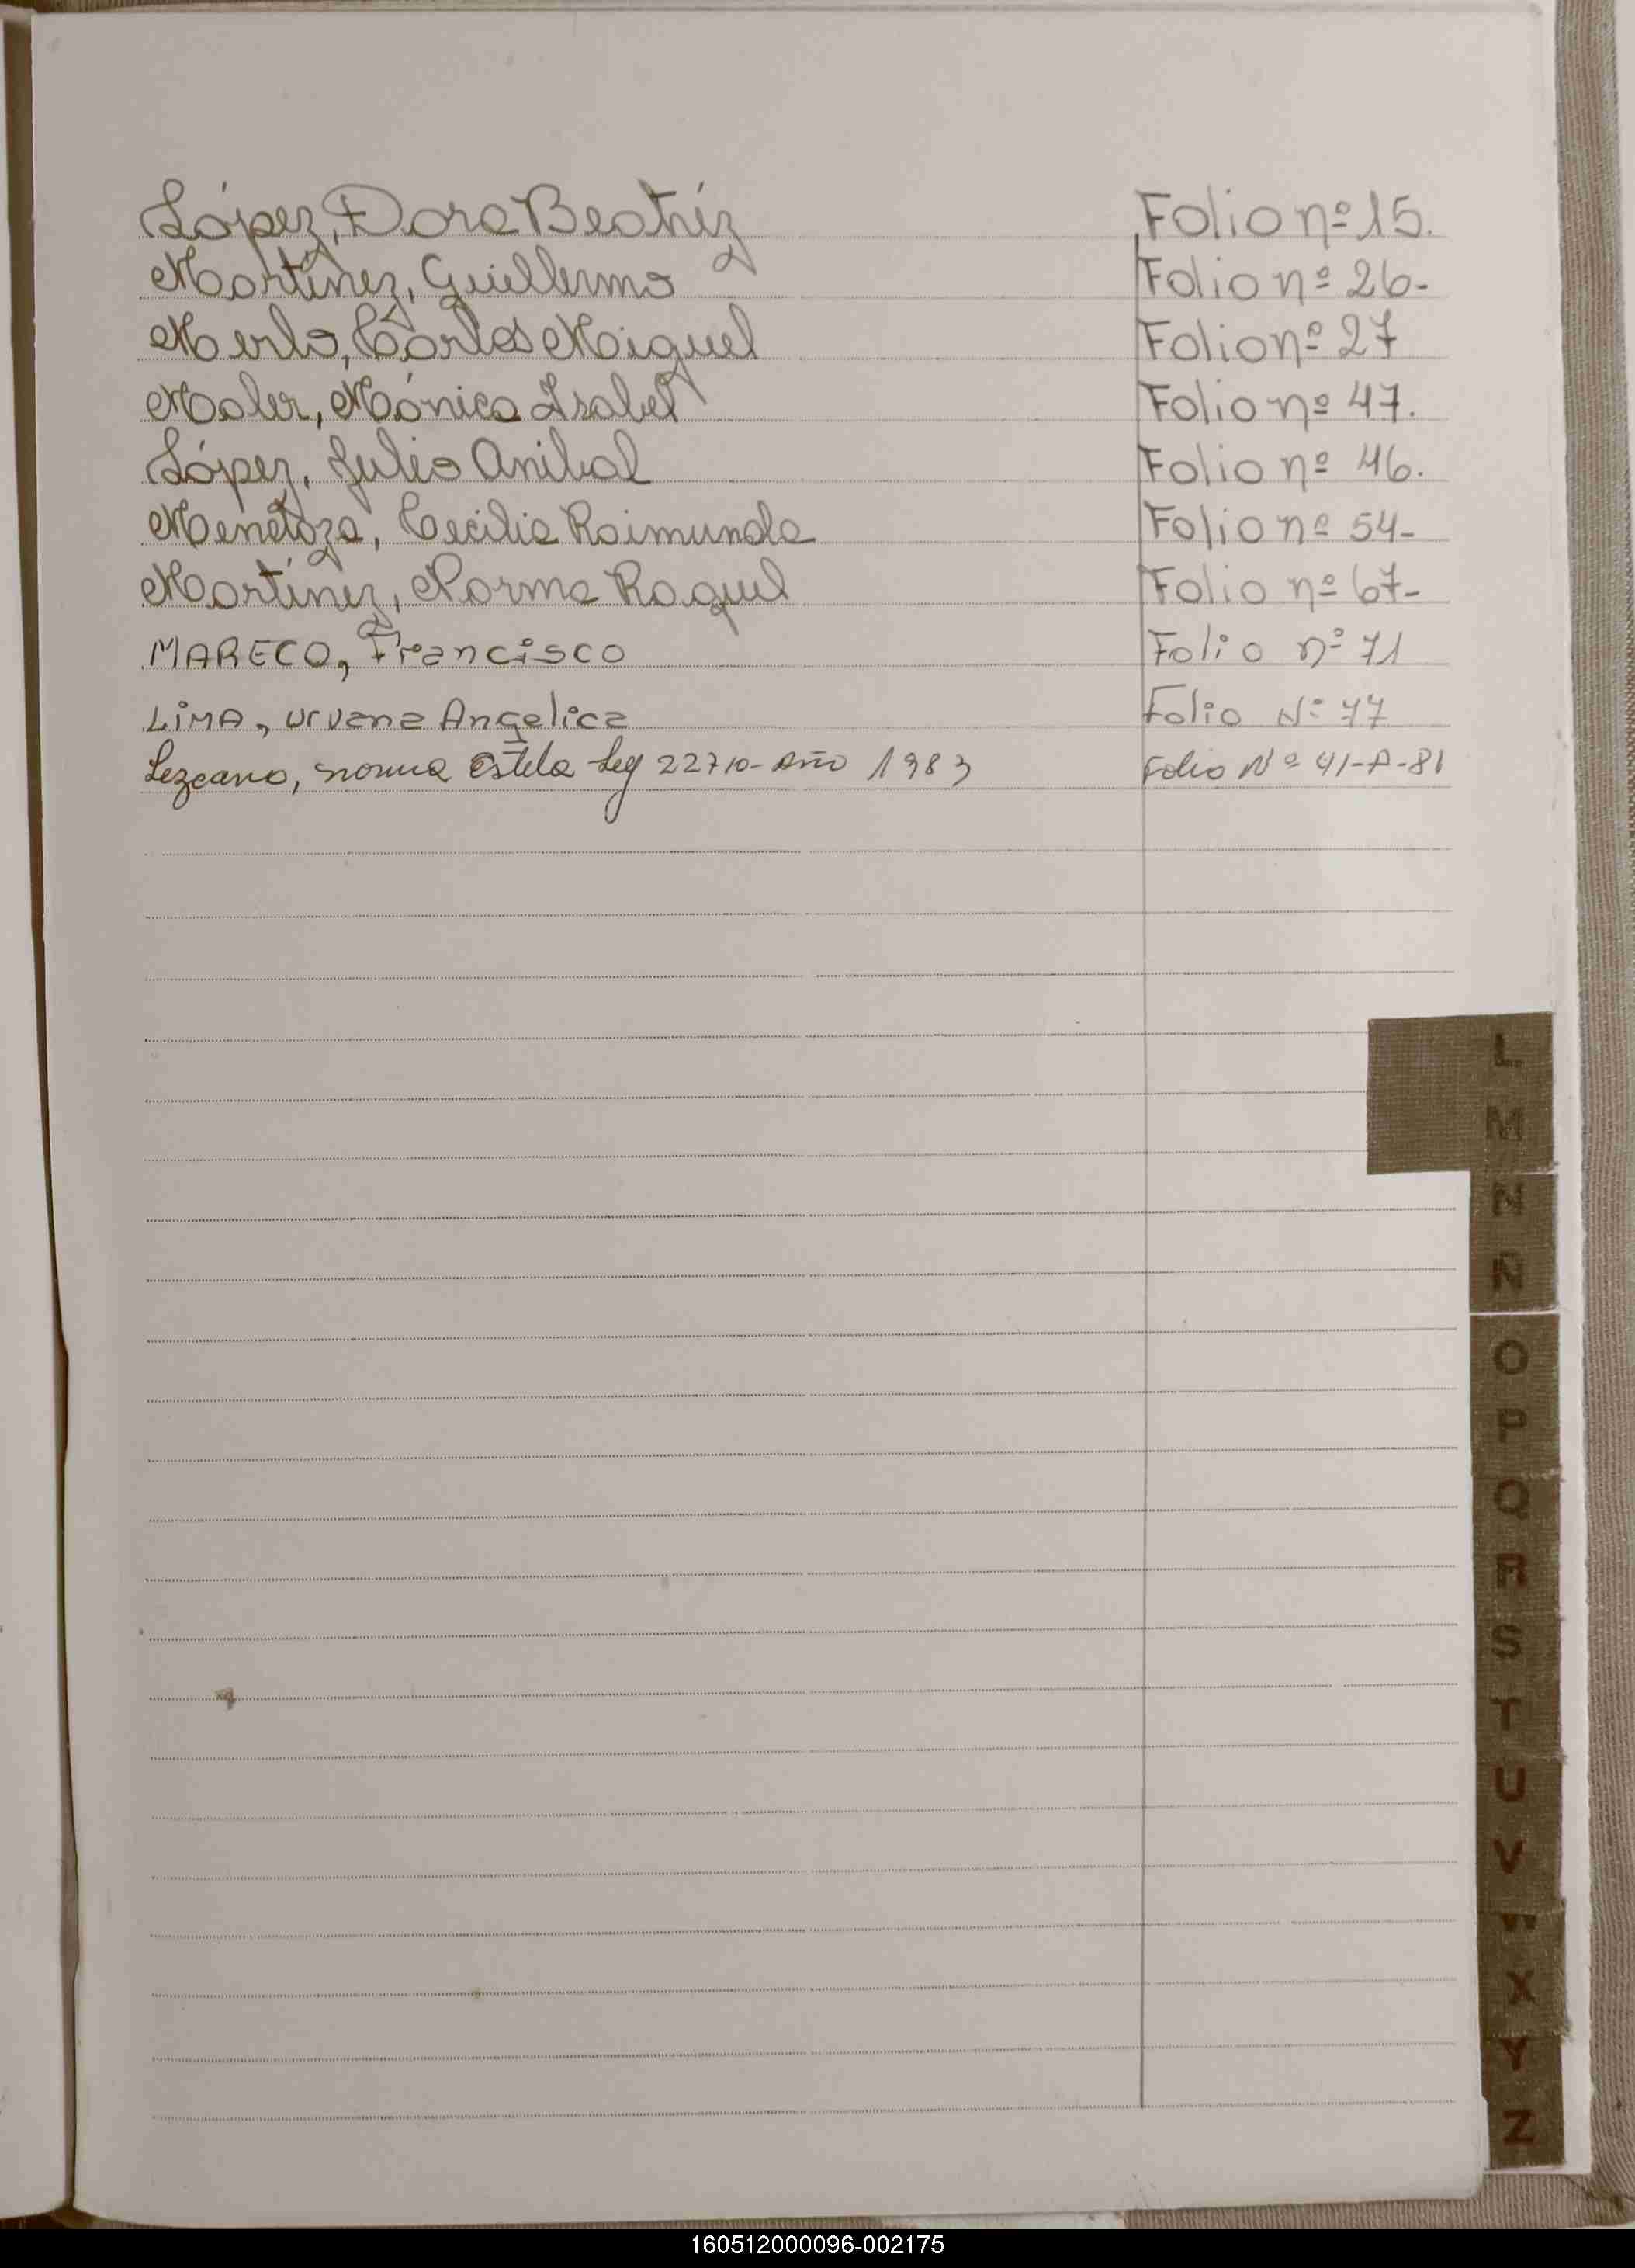 López, Dora Beatríz Folio nº 15.
Martínez, Guillermo Folio nº 26-
Merlo, Carlos Miguel Folio nº 27
Maler, Mónica Isabel Folio nº 47.
López, Julio Anibal Folio nº 46.
Mendoza, Cecilia Raimunda Folio nº 54-
Martínez, Norma Raquel Folio nº 67-
MARECO, Francisco Folio nº 71
LIMA, urvana Angelica Folio Nº 77
Lezcano, norma Estela Leg 22710- Año 1983 Folio Nº 41-A-81
L
M
N
Ñ
O
P
Q
R
S
T
U
V
W
X
Y
Z
160512000096-002175